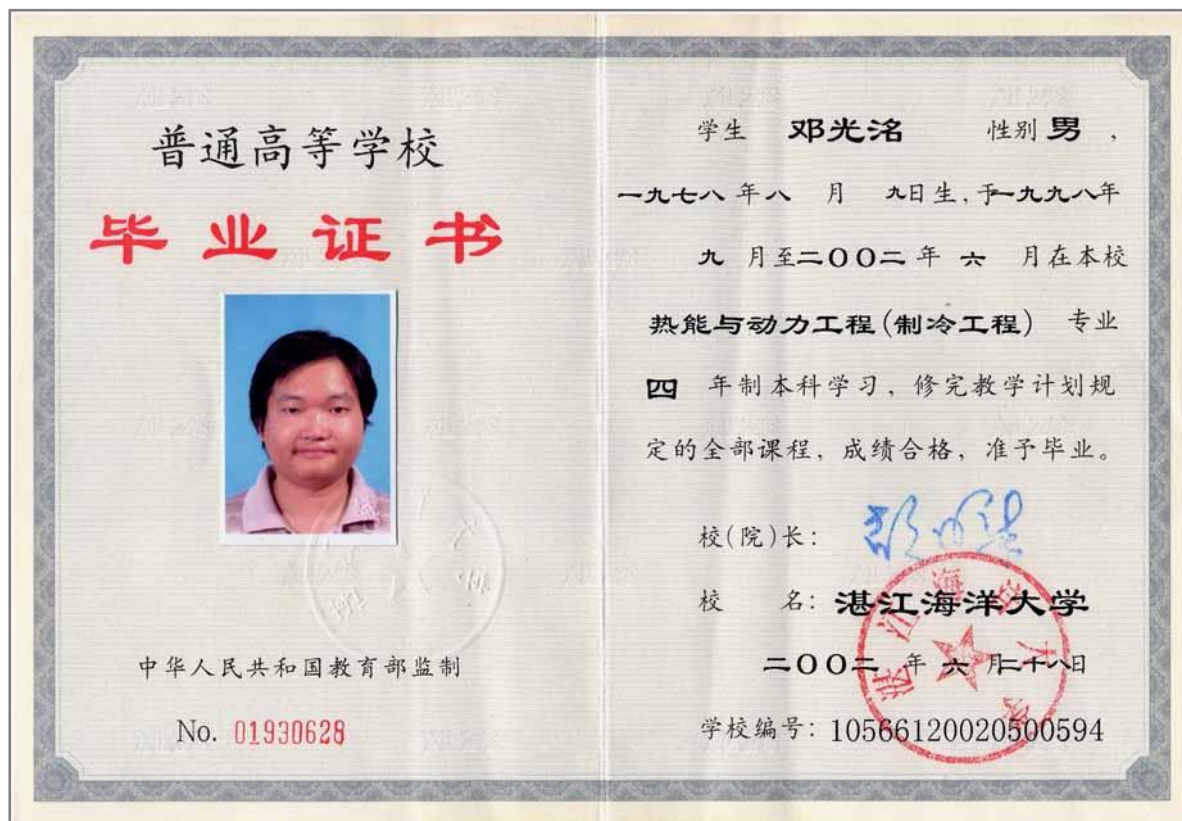 普通高等学校
毕业证书
中华人民共和国教育部监制
No. 01930628
学生 邓光洺 性别 男，
一九七八年八月九日生，于一九九八年
九月至二〇〇二年六月在本校
热能与动力工程（制冷工程） 专业
四年制本科学习，修完教学计划规
定的全部课程，成绩合格，准予毕业。
校（院）长：
校 名：湛江海洋大学
二〇〇二年六月二十八日
学校编号：10566120020500594
湛江海洋大学